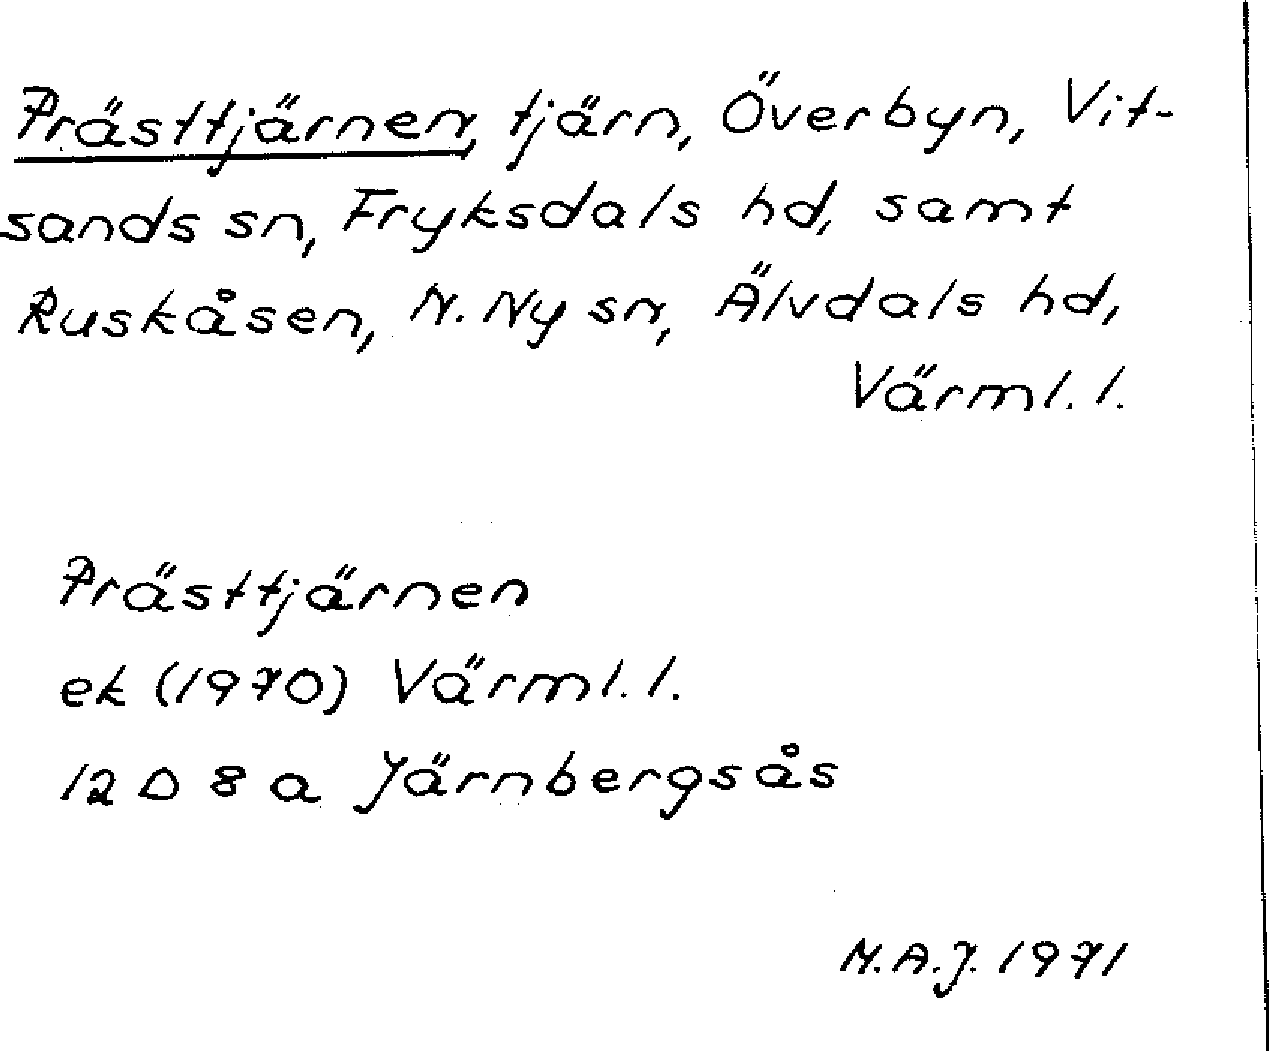 Prästtjärnen, tjärn, Överbyn, Vit-
sands sn, Fryksdals hd, samt
Ruskåsen, N. Ny sn, Älvdals hd,
Värml. l.
Prästtjärnen
ek (1970) Värml. l.
12 D 8 a Järnbergsås
N.A.J. 1971